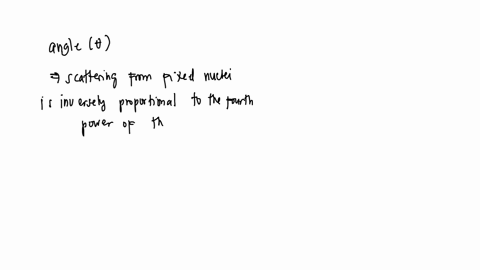 angle (θ)
⇒ scattering from fixed nuclei
is inversely proportional to the fourth
power of th